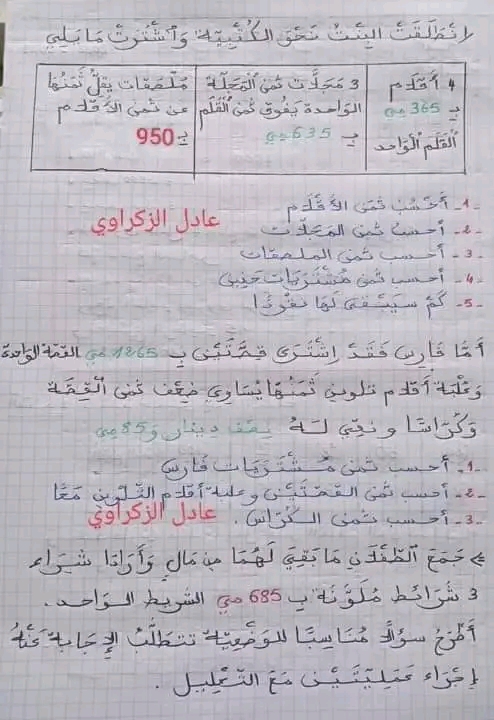 انْطَلَقَتْ البِنْتُ نَحْوَ الكُتْبِيَّة وَاشْتَرَتْ مَا يَلِي
4 أَقْلَام
بِـ 365 مي
القَلَم الوَاحد
3 مَجَلَّات ثمن المَجَلَّة
الوَاحدة يَفُوق ثَمَن القَلَم
بِـ 635 مي
مُلْصَقَات يَقِلُّ ثَمَنُهَا
عن ثمن الأَقْلَام
بِـ 950
-1- أَحْسُب ثَمَن الأَقْلَام
-2- أحسب ثمن المَجَلَّات
عادل الزكراوي
-3- أحسب ثمن الملصقات
-4- أحسب ثمن مُشْتَرَيَات
-5- كَمْ سَيَبْقَى لَهَا نقُودًا
أَمَّا فَارِس فَقَدْ اِشْتَرَى قِصَّتَيْن بِـ 1265 مي القصّة الواحدة
وَعُلْبَة أَقْلَام تلوين ثَمَنُهَا يُسَاوِي ضِعْف ثمن القِصَّة
وَكُرَّاسًا و بقي لَهُ نِصْف دِينَار و 85 مي
-1- أحسب ثمن مُشْتَرَيَات فَارس
-2- أحسب ثمن القصّتَيْن وعلبة أقلام التّلوين مَعًا
-3- أحسب ثمن الكُرَّاس.
عادل الزكراوي
جَمَعَ الطِّفْلَان مَا بَقِيَ لَهُمَا من مَالٍ وَأَرَادَا شِرَاء
3 شَرَائط مُلَوَّنَة بِـ 685 مي الشريط الوَاحد.
أَطْرَحُ سُؤَالًا مُنَاسِبًا للوَضْعِيَّة تتطَلَّبُ الإِجَابة عَنْهُ
إِجْرَاء عَمَلِيَّتَيْن مَعَ التَّعْلِيل.